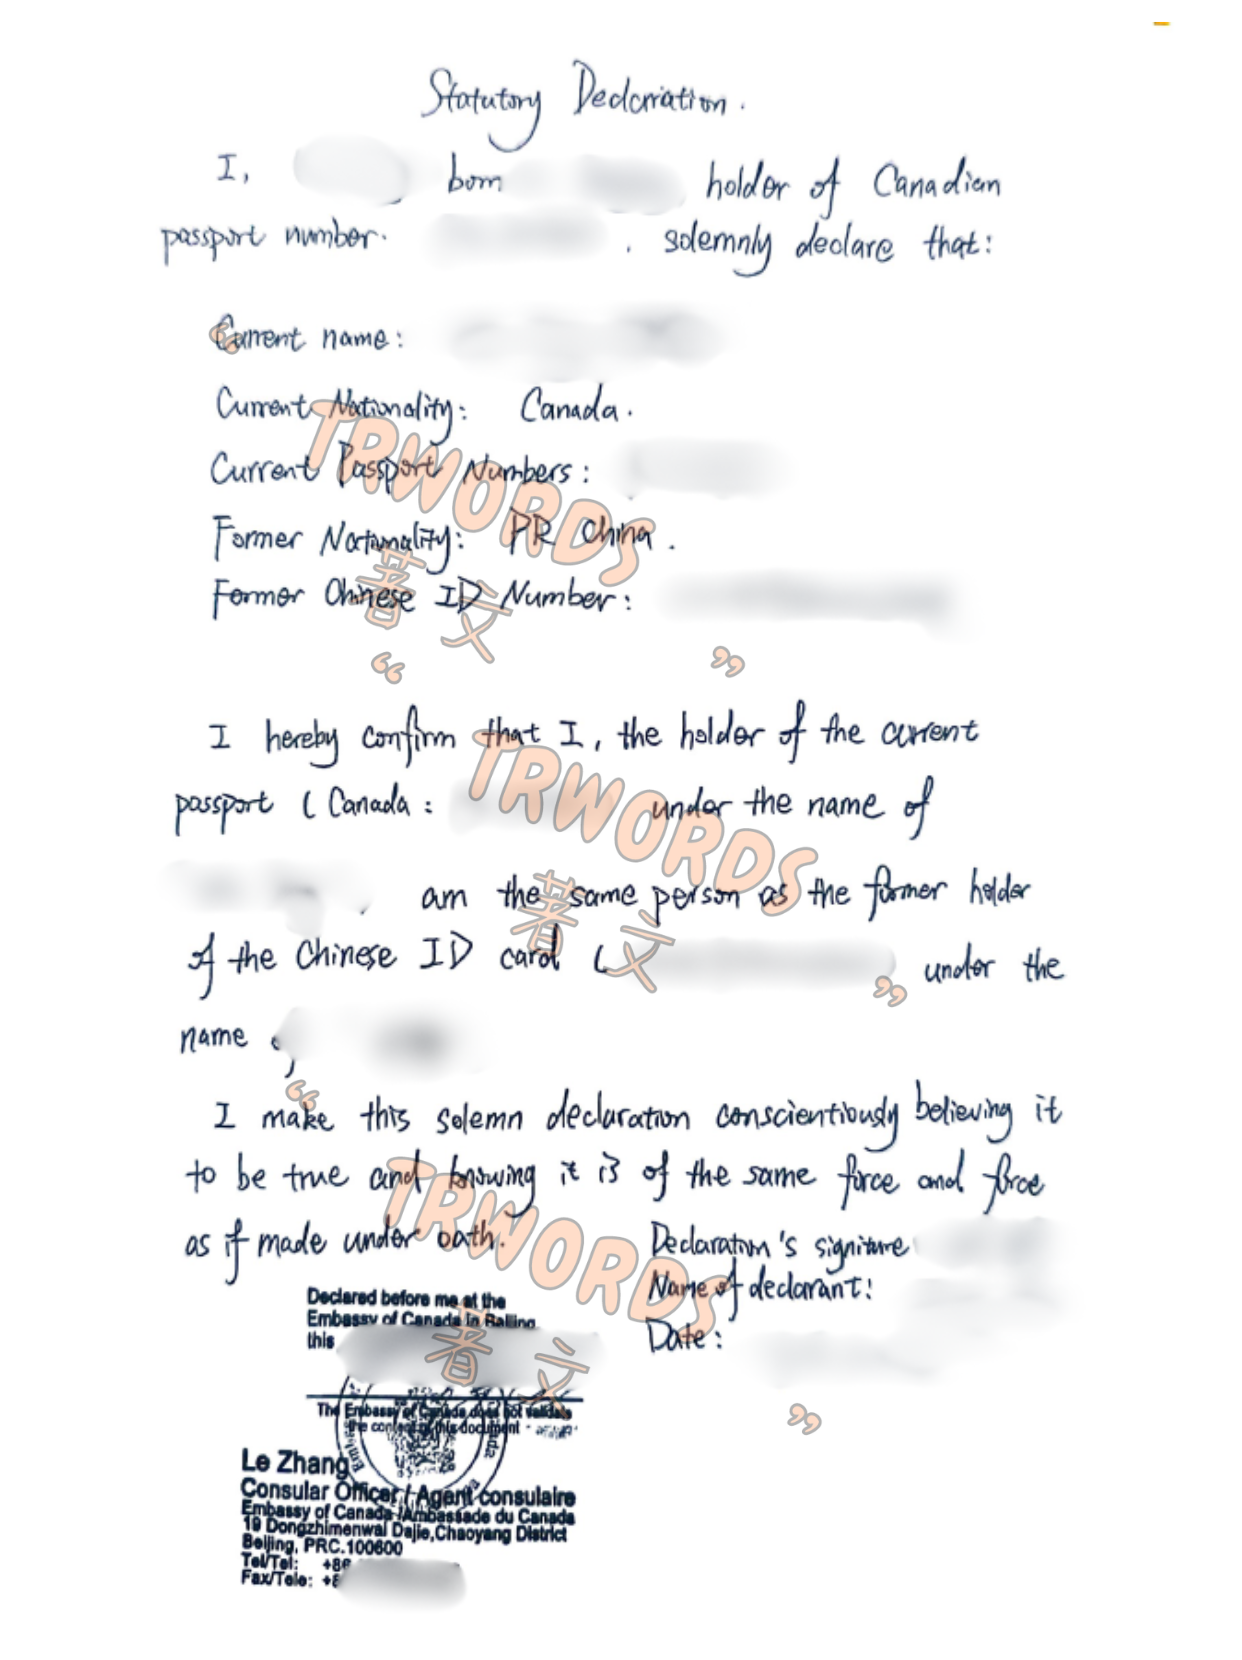 Statutory Declaration.
I, born holder of Canadian
passport number. , solemnly declare that:
Current name:
Current Nationality: Canada.
Current Passport Numbers:
Former Nationality: PR China.
Former Chinese ID Number:
“TRWORDS
著文
”
I hereby confirm that I, the holder of the current
passport (Canada: under the name of
, am the same person as the former holder
of the Chinese ID card ( under the
name
“TRWORDS
著文
”
I make this solemn declaration conscientiously believing it
to be true and knowing it is of the same force and force
as if made under oath.
Declaration's signiture
Name of declarant:
Date:
“TRWORDS
著文
”
Declared before me at the
Embassy of Canada in Beijing
this
The Embassy of Canada does not validate
the content of this document
Le Zhang
Consular Officer / Agent consulaire
Embassy of Canada / Ambassade du Canada
19 Dongzhimenwai Dajie, Chaoyang District
Beijing, PRC.100600
Tel/Tel:
Fax/Tele: